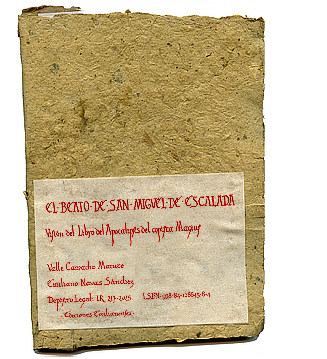 EL·BEATO·DE·SAN·MIGUEL·DE·ESCALADA
Visión del Libro del Apocalipsis del copista Magius
Valle Camacho Matute
Emiliano Navas Sánchez
Depósito Legal: LR 213-2025
- Ediciones Emilianenses -